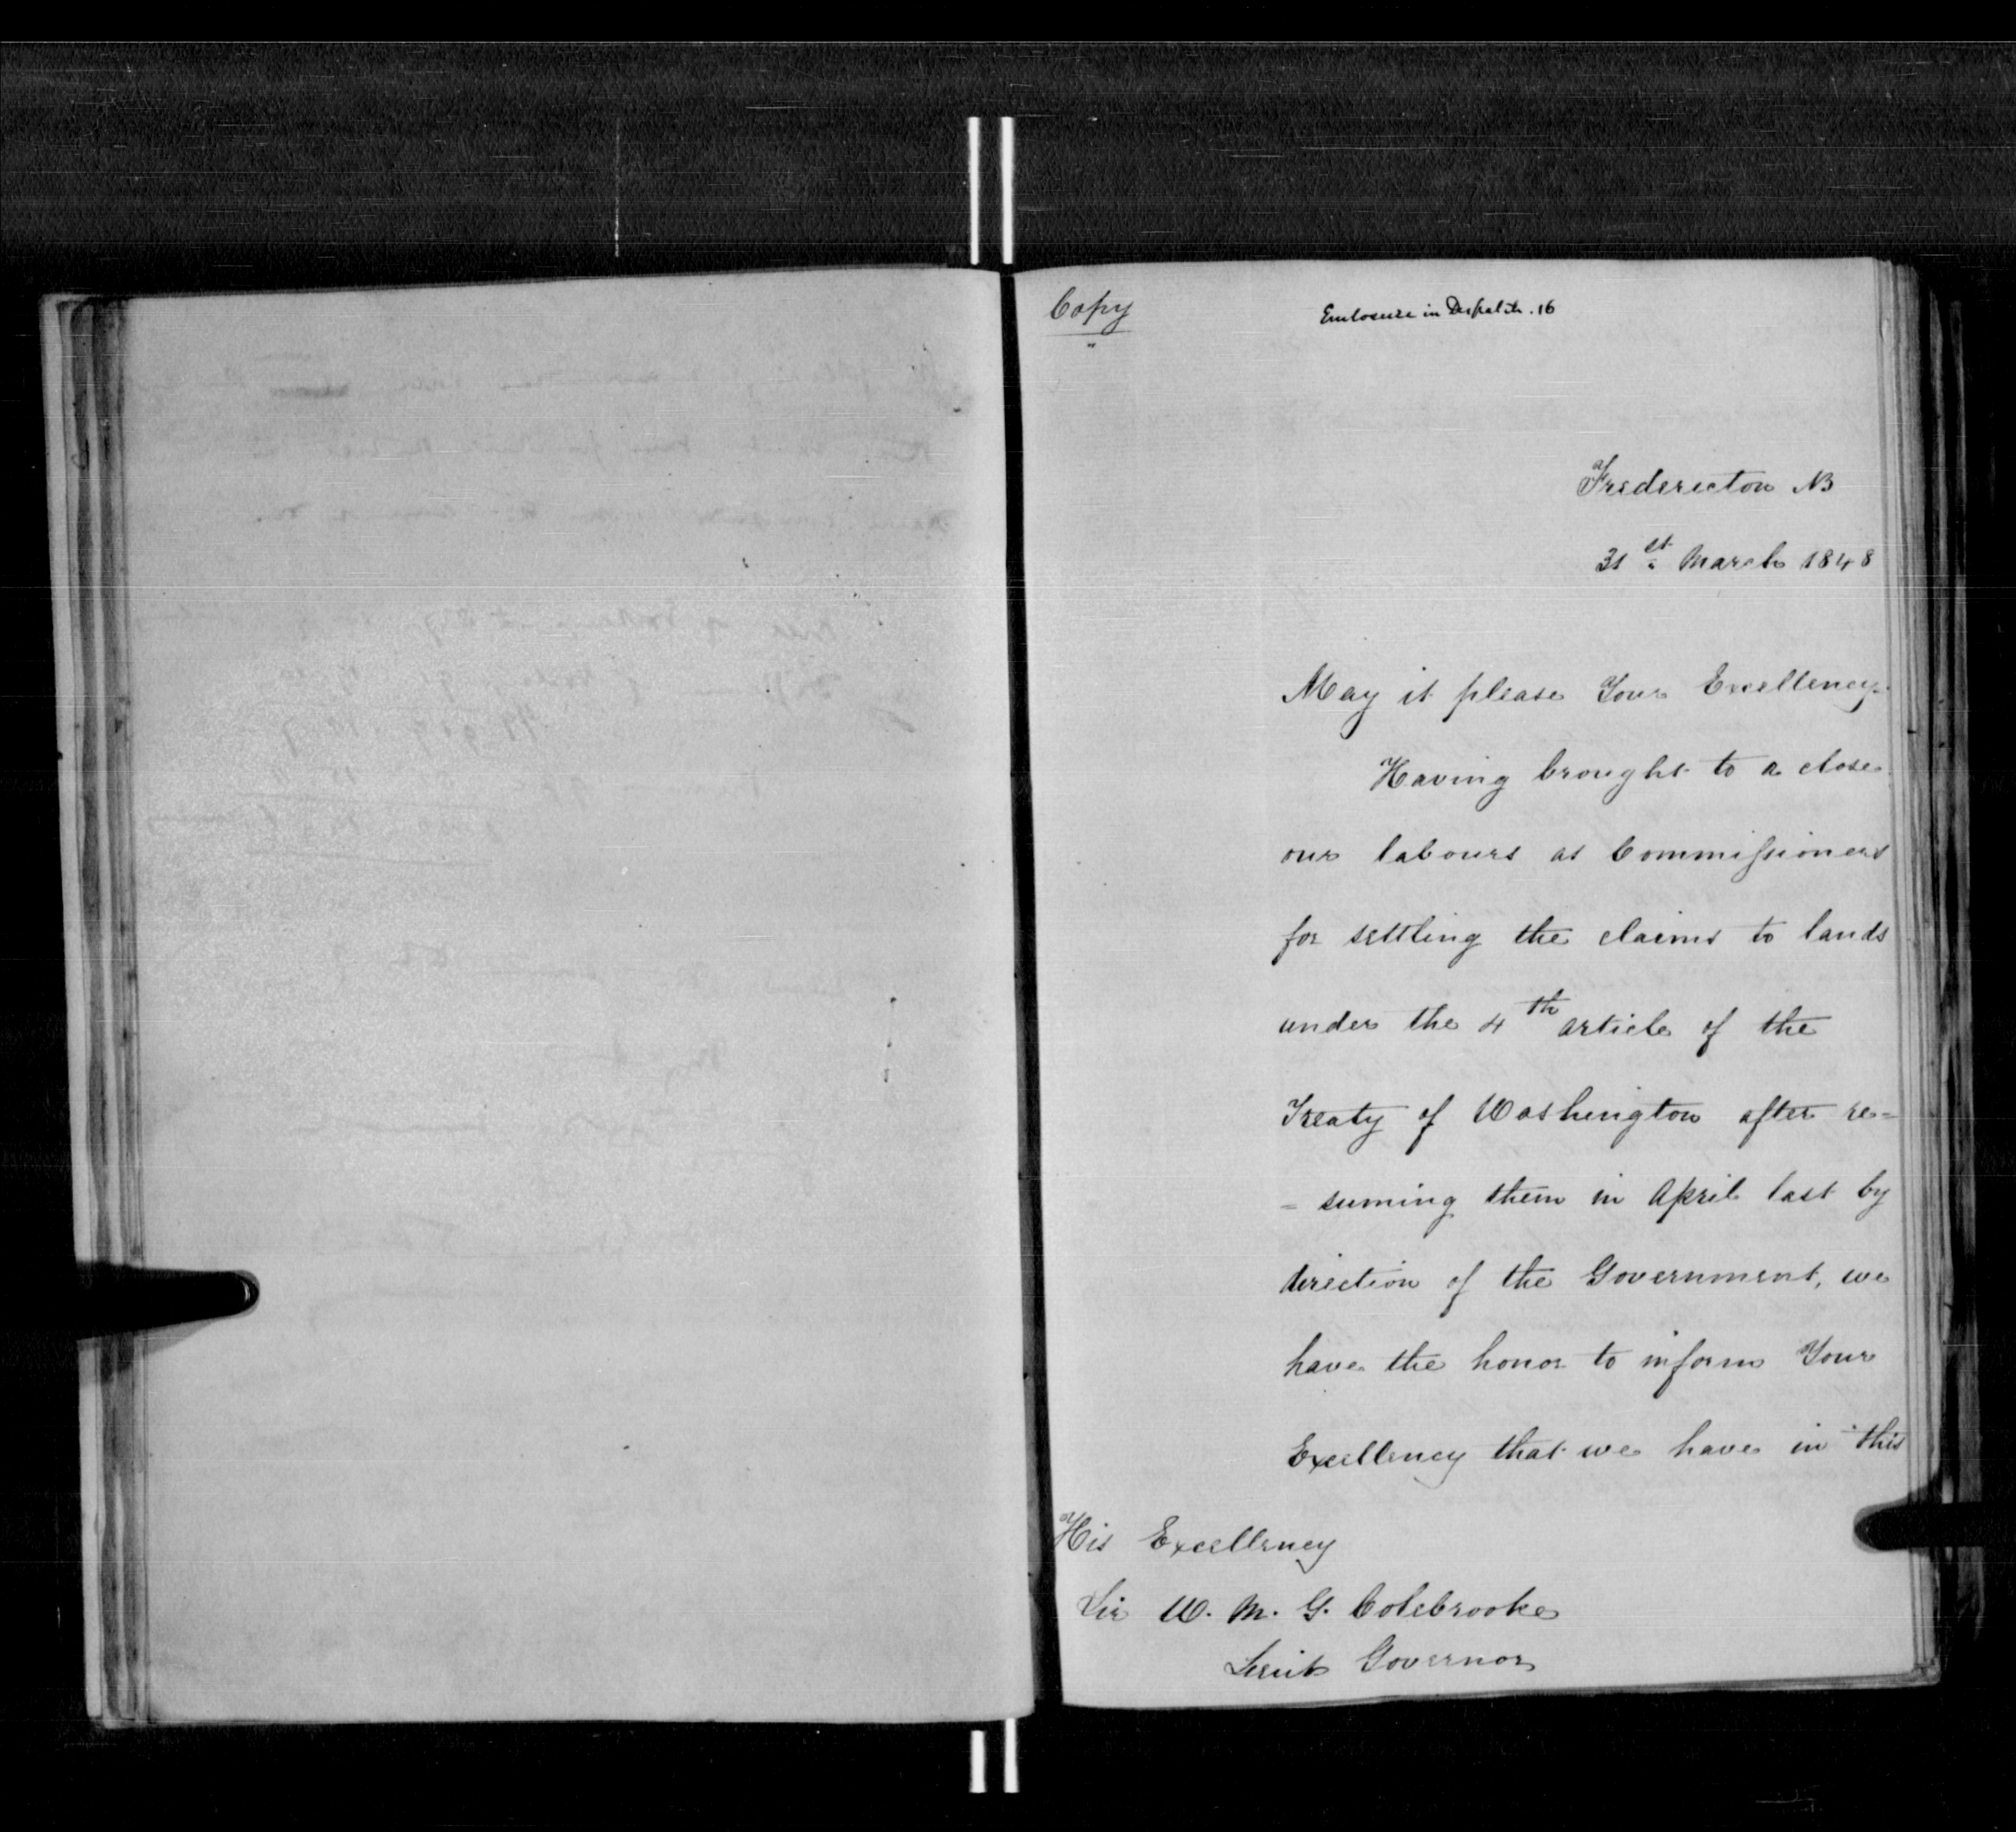 Copy
"
Enclosure in Despatch. 16
Fredericton NB
31st March 1848
May it please Your Excellency.
Having brought to a close
our labours as Commissioners
for settling the claims to lands
under the 4th article of the
Treaty of Washington after re=
= suming them in April last by
direction of the Government, we
have the honor to inform Your
Excellency that we have in this
His Excellency
Sir W. M. G. Colebrooke
Lieut Governor